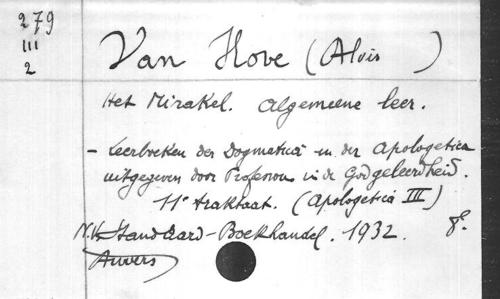 279
III
2
Van Hove (Alois )
Het Mirakel. Algemeene leer.
- Leerboeken der Dogmatica en der Apologetica
uitgegeven door Professoren in de Godgeleerdheid.
11e traktaat. (Apologetica III)
N.V. Standaard-Boekhandel. 1932. 8.
Anvers